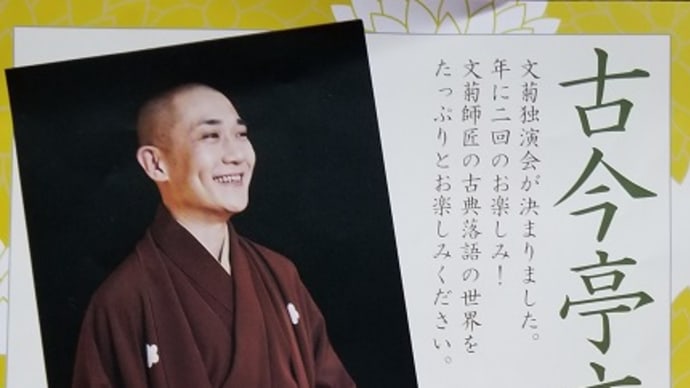 古今亭
文菊独演会が決まりました。
年に二回のお楽しみ！
文菊師匠の古典落語の世界を
たっぷりとお楽しみください。